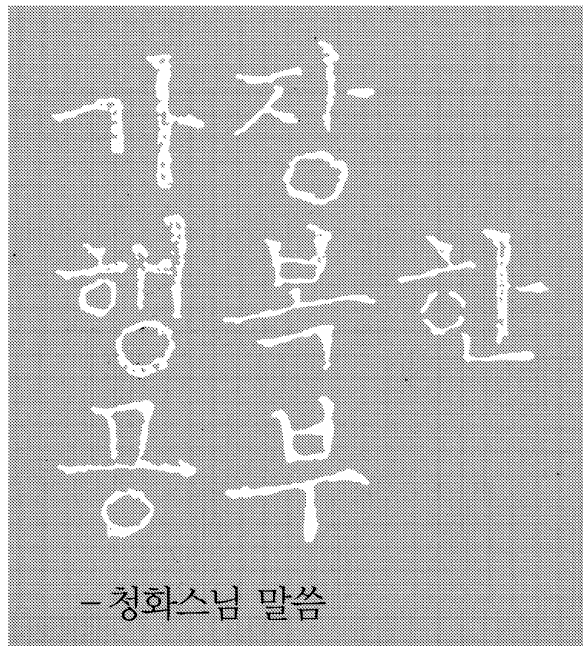 가장
행복한
공부
- 청화스님 말씀